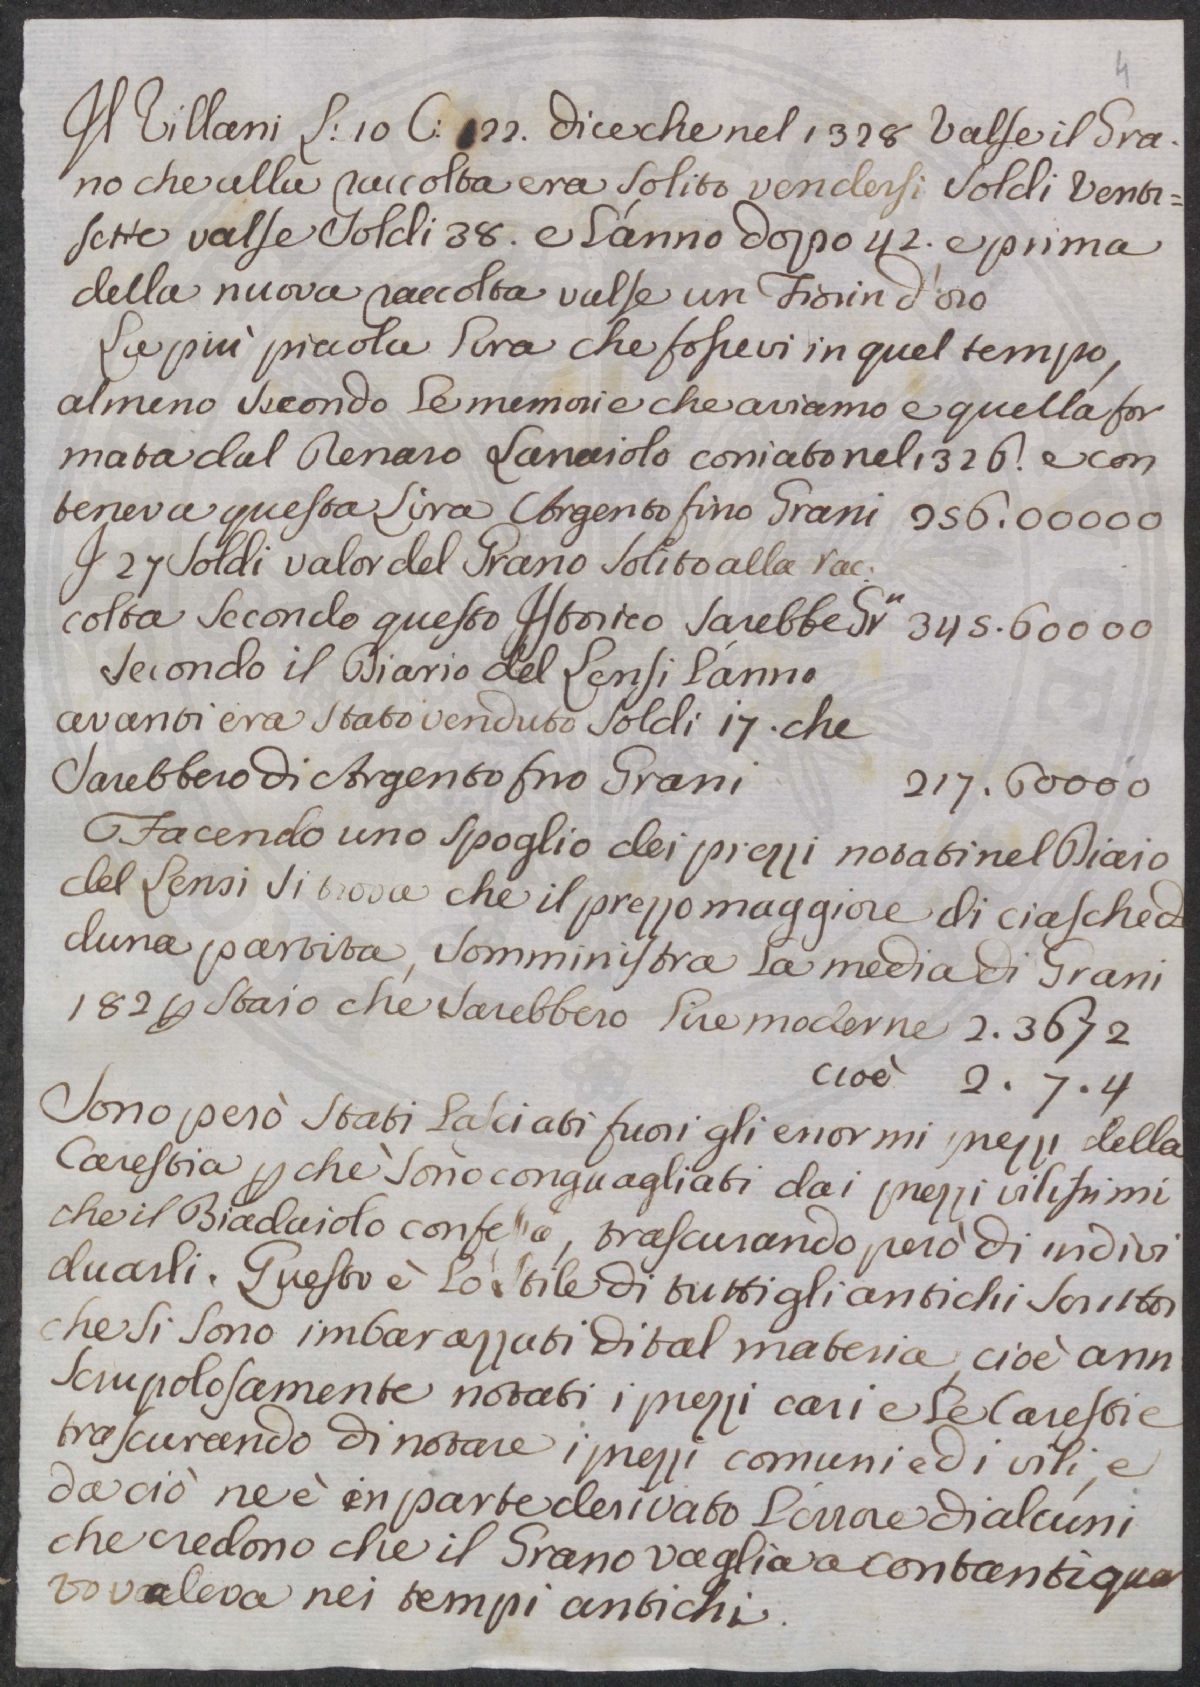 4
Il Villani L: 10 C: 122. dice che nel 1328 valse il Gra-
no che alla raccolta era solito vendersi soldi venti=
sette valse Soldi 38. e l'anno doppo 42. e prima
della nuova raccolta valse un Fiorin d'oro
La più piccola lira che fossevi in quel tempo,
almeno secondo le memorie che aviamo e quella for
mata dal Denaro Lanaiolo coniato nel 1326. e con
teneva questa Lira Argento fino Grani 256.00000
I 27 Soldi valor del Grano solito alla rac:
colta secondo questo Istorico sarebbe Gr.ⁱ 345.60000
Secondo il Diario del Lensi l'anno
avanti era stato venduto soldi 17. che
Sarebbero di Argento fino Grani 217.60000
Facendo uno spoglio dei prezzi notati nel Diario
del Lensi si trova che il prezzo maggiore di ciasched
duna partita, somministra la media di Grani
182 p Staio che sarebbero lire moderne 2.3672
cioè 2.7.4
Sono però stati lasciati fuori gli enormi prezzi della
Carestia p chè sono conguagliati dai prezzi vilissimi
che il Biadaiolo confessa, trascurando però di indivi
duarli. Questo è lo stile di tutti gli antichi scrittori
che si sono imbarazzati di tal materia, cioè ann
scrupolosamente notati i prezzi cari e le Carestie
trascurando di notare i prezzi comuni ed i vili, e
da ciò ne è in parte derivato l'errore di alcuni
che credono che il Grano vaglia a contanti qua
to valeva nei tempi antichi.